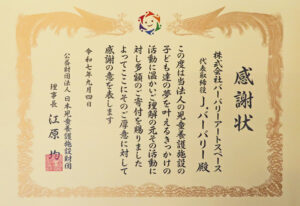 感謝状
株式会社バーバリーアートスペース
代表取締役 J.バーバリー殿
この度は当法人の児童養護施設の
子ども達の夢を叶えるきっかけの
活動に温かいご理解の元その活動に
対し多額のご寄付を賜りました
よってここにそのご厚意に対して
感謝の意を表します
令和七年九月四日
公益財団法人 日本児童養護施設財団
理事長 江原 均